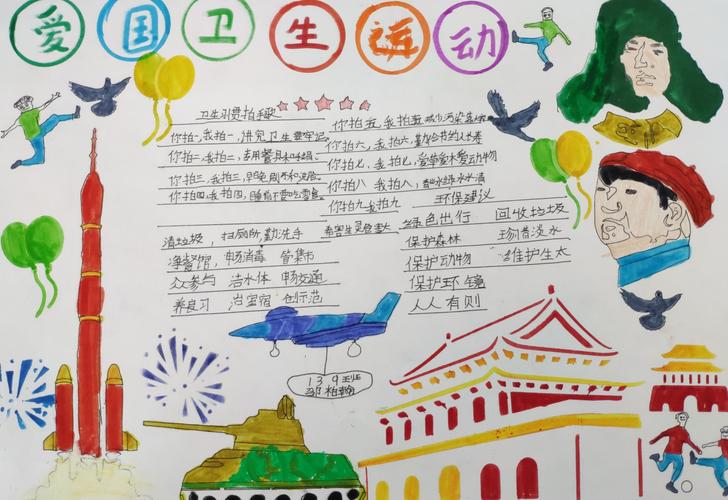 爱国卫生运动
卫生习惯拍手歌
你拍一,我拍一,讲究卫生要牢记
你拍二,我拍二,专用餐具
你拍三,我拍三,早晚刷牙和洗脸
你拍四,我拍四,睡前不要吃零食
你拍五,我拍五,减少污染
你拍六,我拍六,勤俭节约人人
你拍七,我拍七,爱草爱木爱动物
你拍八 我拍八,
你拍九我拍九
清垃圾,扫厕所,勤洗手
净餐馆,常消毒 管集市
众参与 洁水体 畅交通
养良习 治室宿 创示范
环保建议
绿色出行 回收垃圾
保护森林 珍惜淡水
保护动物 维护生态
保护环镜
人人有则
139班